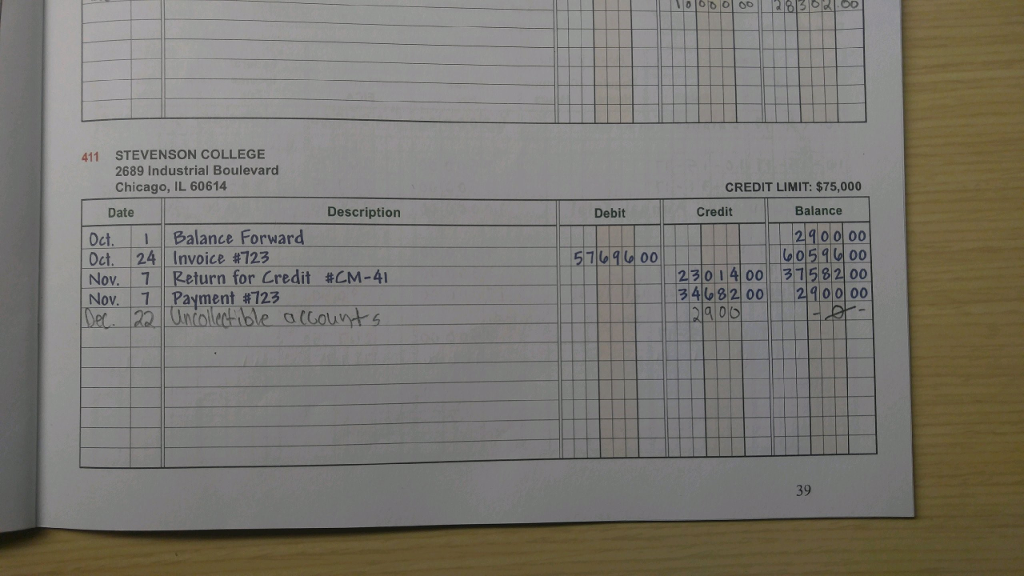 10000 00 28302 00
411 STEVENSON COLLEGE
2689 Industrial Boulevard
Chicago, IL 60614
CREDIT LIMIT: $75,000
Date Description Debit Credit Balance
Oct. 1 Balance Forward 2900 00
Oct. 24 Invoice #723 57696 00 60596 00
Nov. 7 Return for Credit #CM-41 23014 00 37582 00
Nov. 7 Payment #723 34682 00 2900 00
Dec. 22 Uncollectible accounts 2900 -0-
39